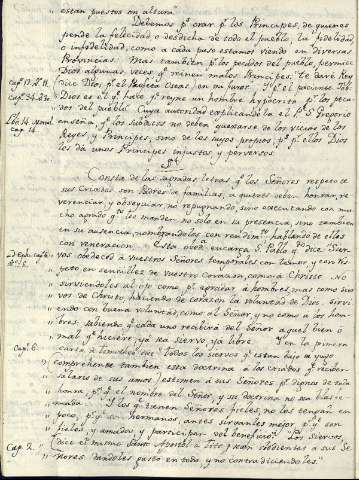 estan puestos en altura.
Debemos pr. orar pr. los Principes, de quienes
pende la felicidad o desdicha de todo el pueblo, la fidelidad
o infidelidad, como a cada paso estamos viendo en diversas
Provincias. Mas tambien pr. los pecados del pueblo, permite
Dios algunas veces qe. reinen malos Principes. Te daré Rey
(dice Dios pr. el Profeta Oseas) en mi furor. Y pr. el paciente Job:
Dios es el qe. hace qe. reyne un hombre hypocrita pr. los peca
dos del pueblo. Cuya autoridad explicandola el P. S. Gregorio
enseña qe. los subditos no deben quexarse de los vicios de los
Reyes, y Principes, sino de los suyos propios, pr. qe. por ellos Dios
les dá unos Principes injustos, y perversos.
Cap. 13. Lib. 14. Moral. cap. 14.
Consta de las sagradas letras qe. los Señores respecto de
sus Criados son Padres de familias, a quienes deben honrar, re
verenciar y obsequiar, no repugnando, sino executando con mu
cho agrado qto. les manden no solo en su presencia, sino tambien
en su ausencia, nombrandolos con rendimto. y hablando de ellos
con veneracion. Esta obeda. encarga S. Pablo, qe. dice: Sier
vos obedeced á vuestros Señores temporales con temor y con res
peto en sencillez de vuestro Corazon, como á Christo. No
sirviendoles al ojo como pr. agradar á hombres, mas como sier
vos de Christo, haciendo de corazon la voluntad de Dios. Sirvi
endo con buena voluntad, como al Señor, y no como a los hom
bres, sabiendo qe. cada uno recibirá del Señor aquel bien ó
mal qe. hiciere, ya sea siervo, ya libre. Y en la primera
Cap. 6.
carta a Timoteo dice: Todos los siervos qe. estan bajo de yugo
comprehende tambien esta doctrina á los criados qe. reciben
salario de sus amos) estimen á sus Señores pr. dignos de toda
honra, pa. qe. el nombre del Señor, y su doctrina no sea blasfe
mada. Y los qe. tienen Señores fieles, no los tengan en
poco, pr. qe. son hermanos, antes sirvanles mejor pr. qe. son
fieles, y amados y participan del beneficio. Los siervos,
Cap. 2.
(dice el mismo Santo Apostol a Tito) sean obedientes a sus Se
ñores dandoles gusto en todo, y no contradiciendoles.